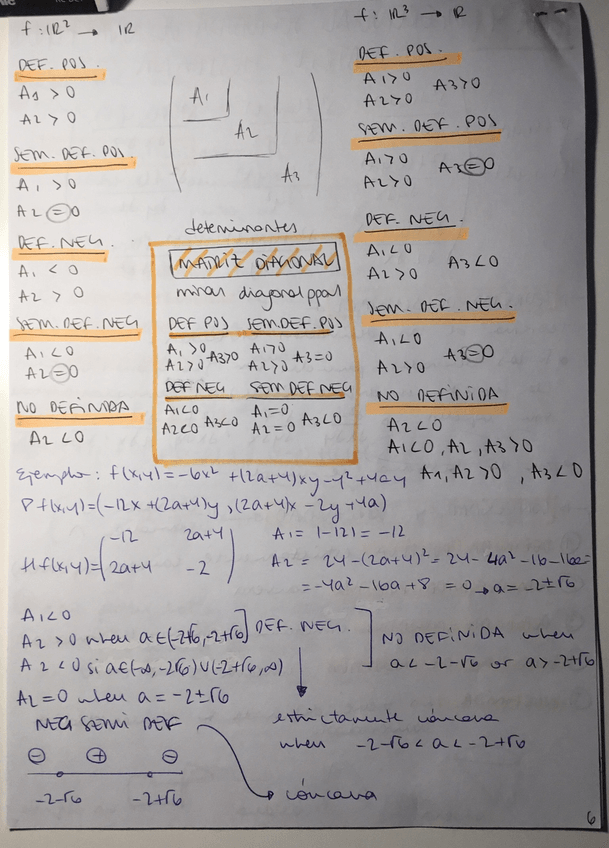 f: IR² → IR
DEF. POS.
A1 > 0
A2 > 0
SEM. DEF. POS.
A1 > 0
A2 = 0
DEF. NEG.
A1 < 0
A2 > 0
SEM. DEF. NEG
A1 < 0
A2 = 0
NO DEFINIDA
A2 < 0
A1
A2
A3
determinantes
MATRIZ DIAGONAL
mirar diagonal ppal
DEF POS SEM. DEF. POS
A1 > 0 A1 > 0
A2 > 0 A3 > 0 A2 > 0 A3 = 0
DEF NEG SEM DEF NEG
A1 < 0 A1 = 0
A2 < 0 A3 < 0 A2 = 0 A3 < 0
f: IR³ → IR
DEF. POS.
A1 > 0
A2 > 0 A3 > 0
SEM. DEF. POS
A1 > 0
A2 > 0 A3 = 0
DEF. NEG.
A1 < 0
A2 > 0 A3 < 0
SEM. DEF. NEG.
A1 < 0
A2 > 0 A3 = 0
NO DEFINIDA
A2 < 0
A1 < 0, A2, A3 > 0
A1, A2 > 0, A3 < 0
Ejemplo: f(x,y) = -6x² + (2a+4)xy - y² + 4ay
∇f(x,y) = (-12x + (2a+4)y, (2a+4)x - 2y + 4a)
-12 2a+4
Hf(x,y) = 2a+4 -2
A1 = |-12| = -12
A2 = 24 - (2a+4)² = 24 - 4a² - 16 - 16a =
= -4a² - 16a + 8 = 0 → a = -2±√6
A1 < 0
A2 > 0 when a ∈ (-2-√6, -2+√6) DEF. NEG.
A2 < 0 si a ∈ (-∞, -2-√6) ∪ (-2+√6, ∞)
NO DEFINIDA when
a < -2-√6 or a > -2+√6
A2 = 0 when a = -2±√6
NEG SEMI DEF
estrictamente cóncava
when -2-√6 < a < -2+√6
⊖ ⊕ ⊖
-2-√6 -2+√6
cóncava
6